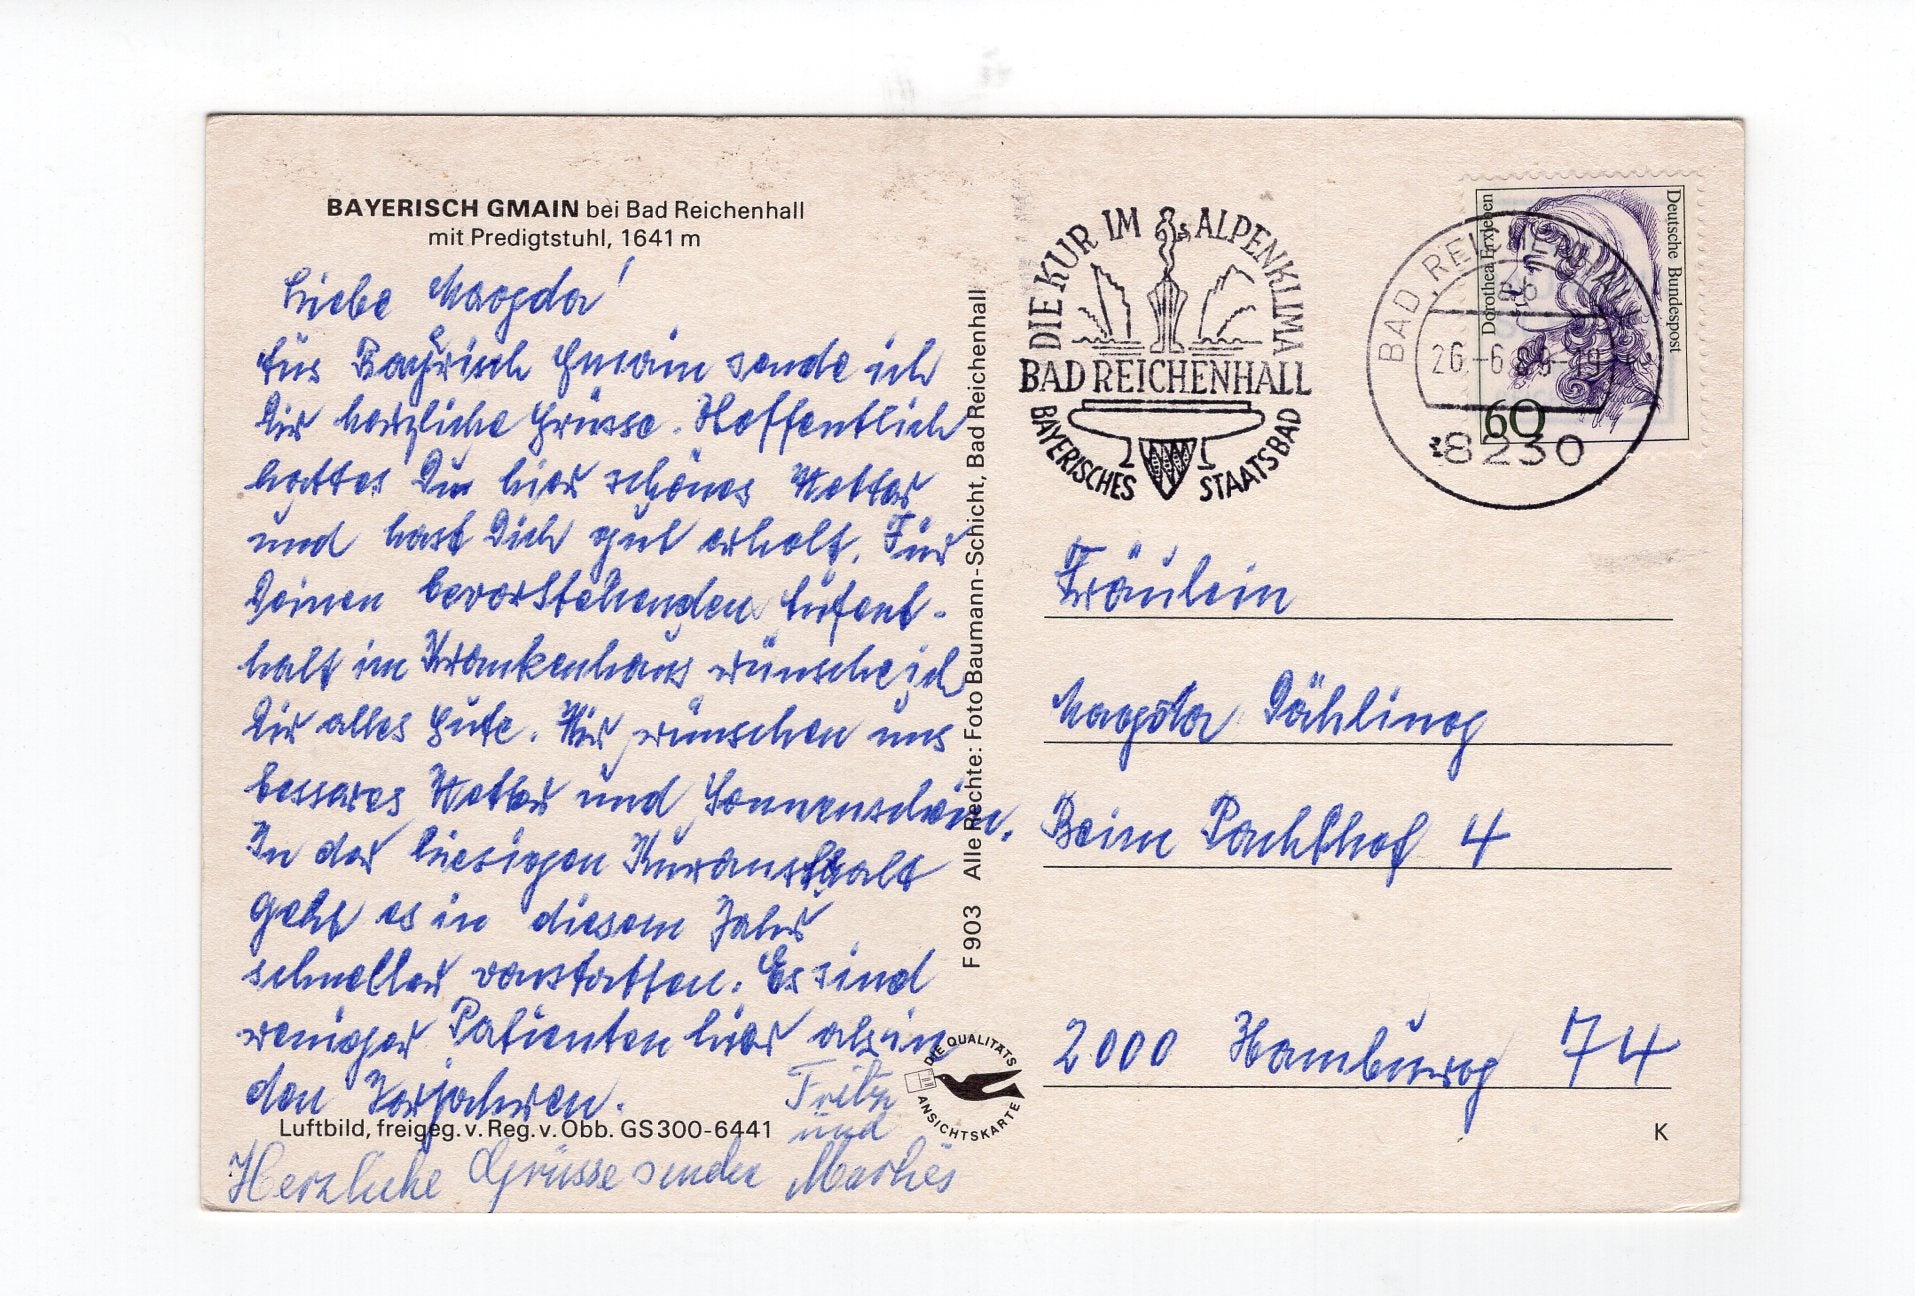 BAYERISCH GMAIN bei Bad Reichenhall
mit Predigtstuhl, 1641 m
Liebe Magda!
Aus Bayrisch Gmain sende ich
Dir herzliche Grüsse. Hoffentlich
hattes Du hier schönes Wetter
und hast Dich gut erholt. Für
Deinen bevorstehenden Aufent-
halt im Krankenhaus wünsche ich
Dir alles Gute. Wir wünschen uns
besseres Wetter und Sonnenschein.
In der hiesigen Kuranstalt
geht es in diesem Jahr
schneller vonstatten. Es sind
weniger Patienten hier als in
den Vorjahren.
Fritz
und
Luftbild, freigeg. v. Reg. v. Obb. GS 300-6441
Herzliche Grüsse sendet Marlies
F 903 Alle Rechte: Foto Baumann-Schicht, Bad Reichenhall
DIE QUALITÄTS
ANSICHTSKARTE
DIE KUR IM ALPENKLIMA
BAD REICHENHALL
BAYERISCHES STAATSBAD
BAD REICHENHALL
26.-6.89-19
8230
Deutsche Bundespost
Dorothea Erxleben
60
Fräulein
Magda Dähling
Beim Pachthof 4
2000 Hamburg 74
K